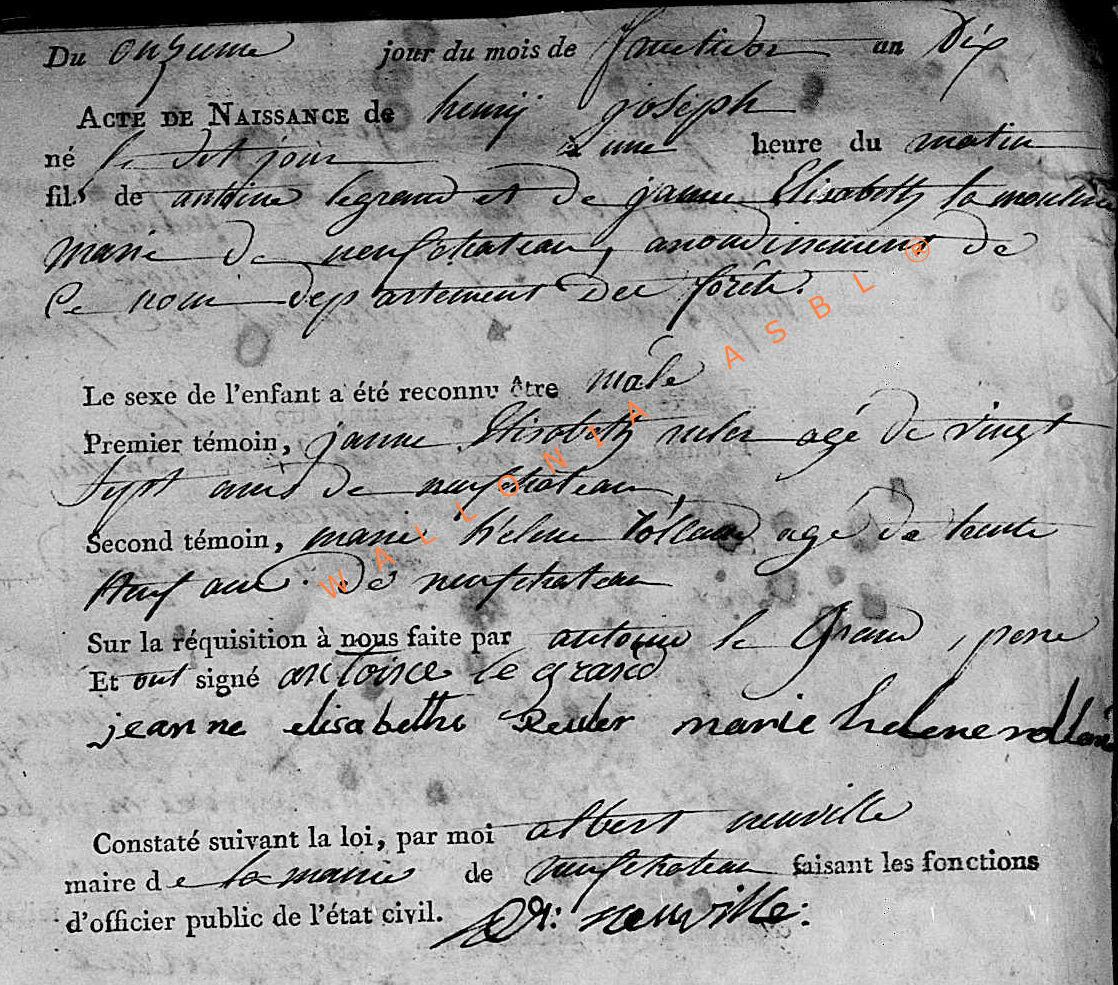 Du onzieme jour du mois de fructidor an Dix
ACTE DE NAISSANCE de henry joseph
né le dit jour a une heure du matin
fils de antoine legrand et de jeanne Elisabeth
marie de neufchateau, arrondissement de
Ce nom departement des forêts.
Le sexe de l'enfant a été reconnu être mâle
Premier témoin, jeanne Elisabeth agé de vingt
Sept ans de neufchateau,
Second témoin, marie helene rolland agé de trente
Neuf ans de neufchateau
Sur la réquisition à nous faite par antoine le Grand, pere
Et ont signé antoine le grand
jeanne elisabethe Reuler marie helene rolland
Constaté suivant la loi, par moi albert neuville
maire de la mairie de neufchateau faisant les fonctions
d'officier public de l'état civil. neuville:
WALLONIA ASBL ®